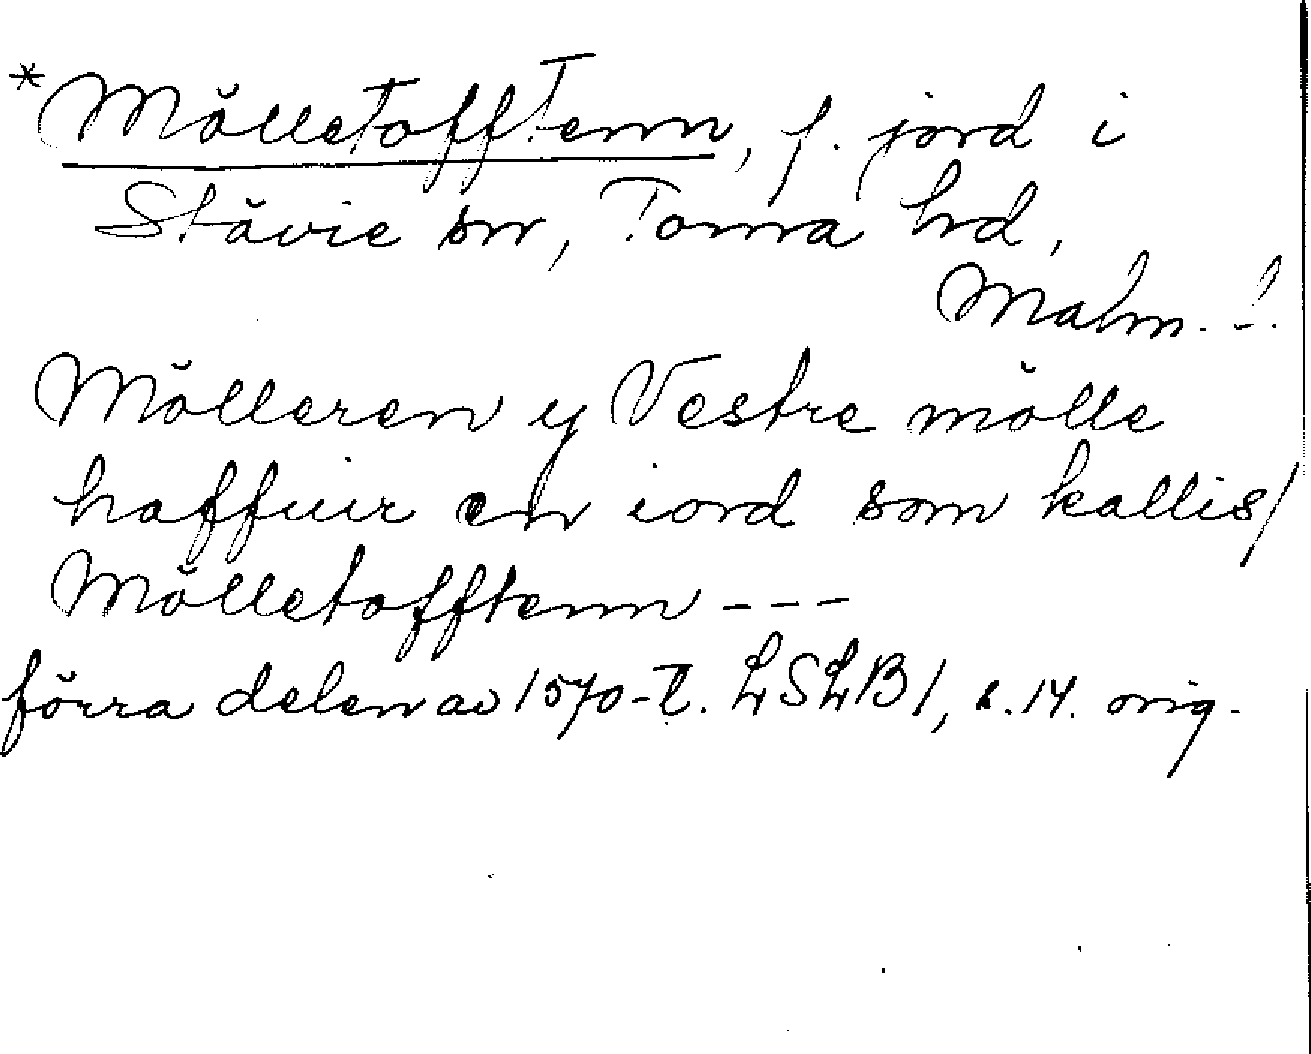 *Mölletofftenn, f. jord i
Stävie sn, Torna hd,
Malm. l.
Mölleren y Vestre mölle
haffuir en iord som kallis/
Mölletofftenn ---
förra delen av 1570-t. LSLB 1, s. 14. orig.